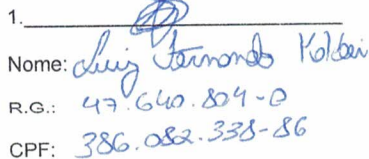 1.
Nome: Luiz Fernando
R.G.: 47.640.804-0
CPF: 386.082.338-86